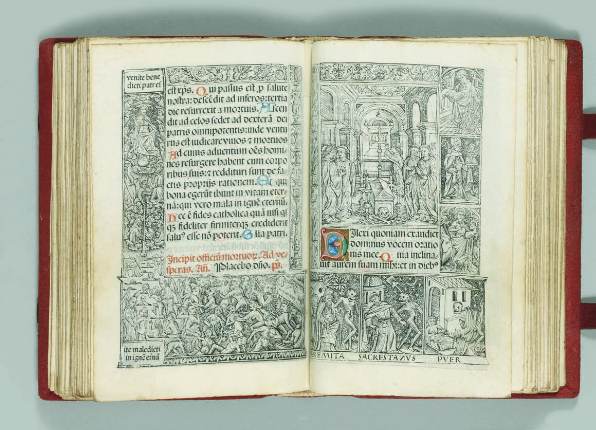 venite bene
dicti patris
est xp̄s. Qui passus est p̄ salute
nostra: descēdit ad inferos: tertia
die resurrexit a mortuis. Ascen
dit ad celos sedet ad dexterā dei
patris omnipotentis: inde ventu
rus est iudicare viuos ⁊ mortuos
Ad cuius aduentum oēs homi
nes resurgere habent cum corpo
ribus suis: ⁊ reddituri sunt de fa
ctis proprijs rationem. Et qui
bona egerūt ibunt in vitam eter
nā: qui vero mala in ignē eternū.
Hec ē fides catholica quā nisi q̄s
fideliter firmiterq̄ crediderit
saluꝰ esse nō poterit. Gl̄ia patri.
Incipit officiū mortuoꝝ. Ad ve
speras. Añ. Placebo dn̄o. p̄s.
ite maledicti
in ignē eternū
Dilexi quoniam exaudiet
dominus vocem oratio
nis mee. Quia inclina
uit aurem suam mihi: et in diebꝰ
EREMITA SACRESTANVS PVER